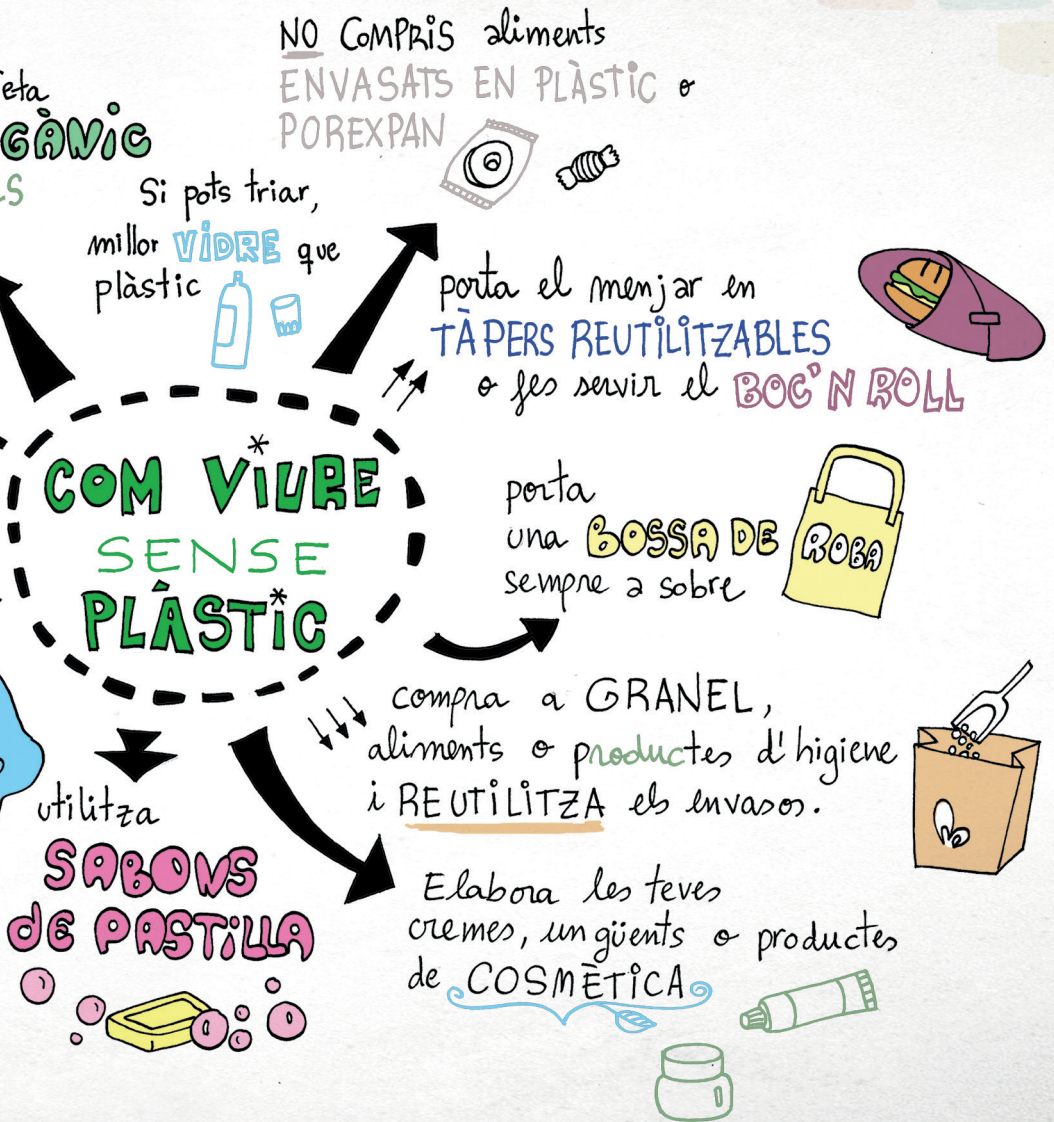 NO COMPRIS aliments
ENVASATS EN PLÀSTIC o
POREXPAN
Si pots triar,
millor VIDRE que
plàstic
porta el menjar en
TÀPERS REUTILITZABLES
o fes servir el BOC'N ROLL
COM VIURE
SENSE
PLÀSTIC
porta
una BOSSA DE ROBA
sempre a sobre
compra a GRANEL,
aliments o productes d'higiene
i REUTILITZA els envasos.
utilitza
SABONS
DE PASTILLA
Elabora les teves
cremes, ungüents o productes
de COSMÈTICA